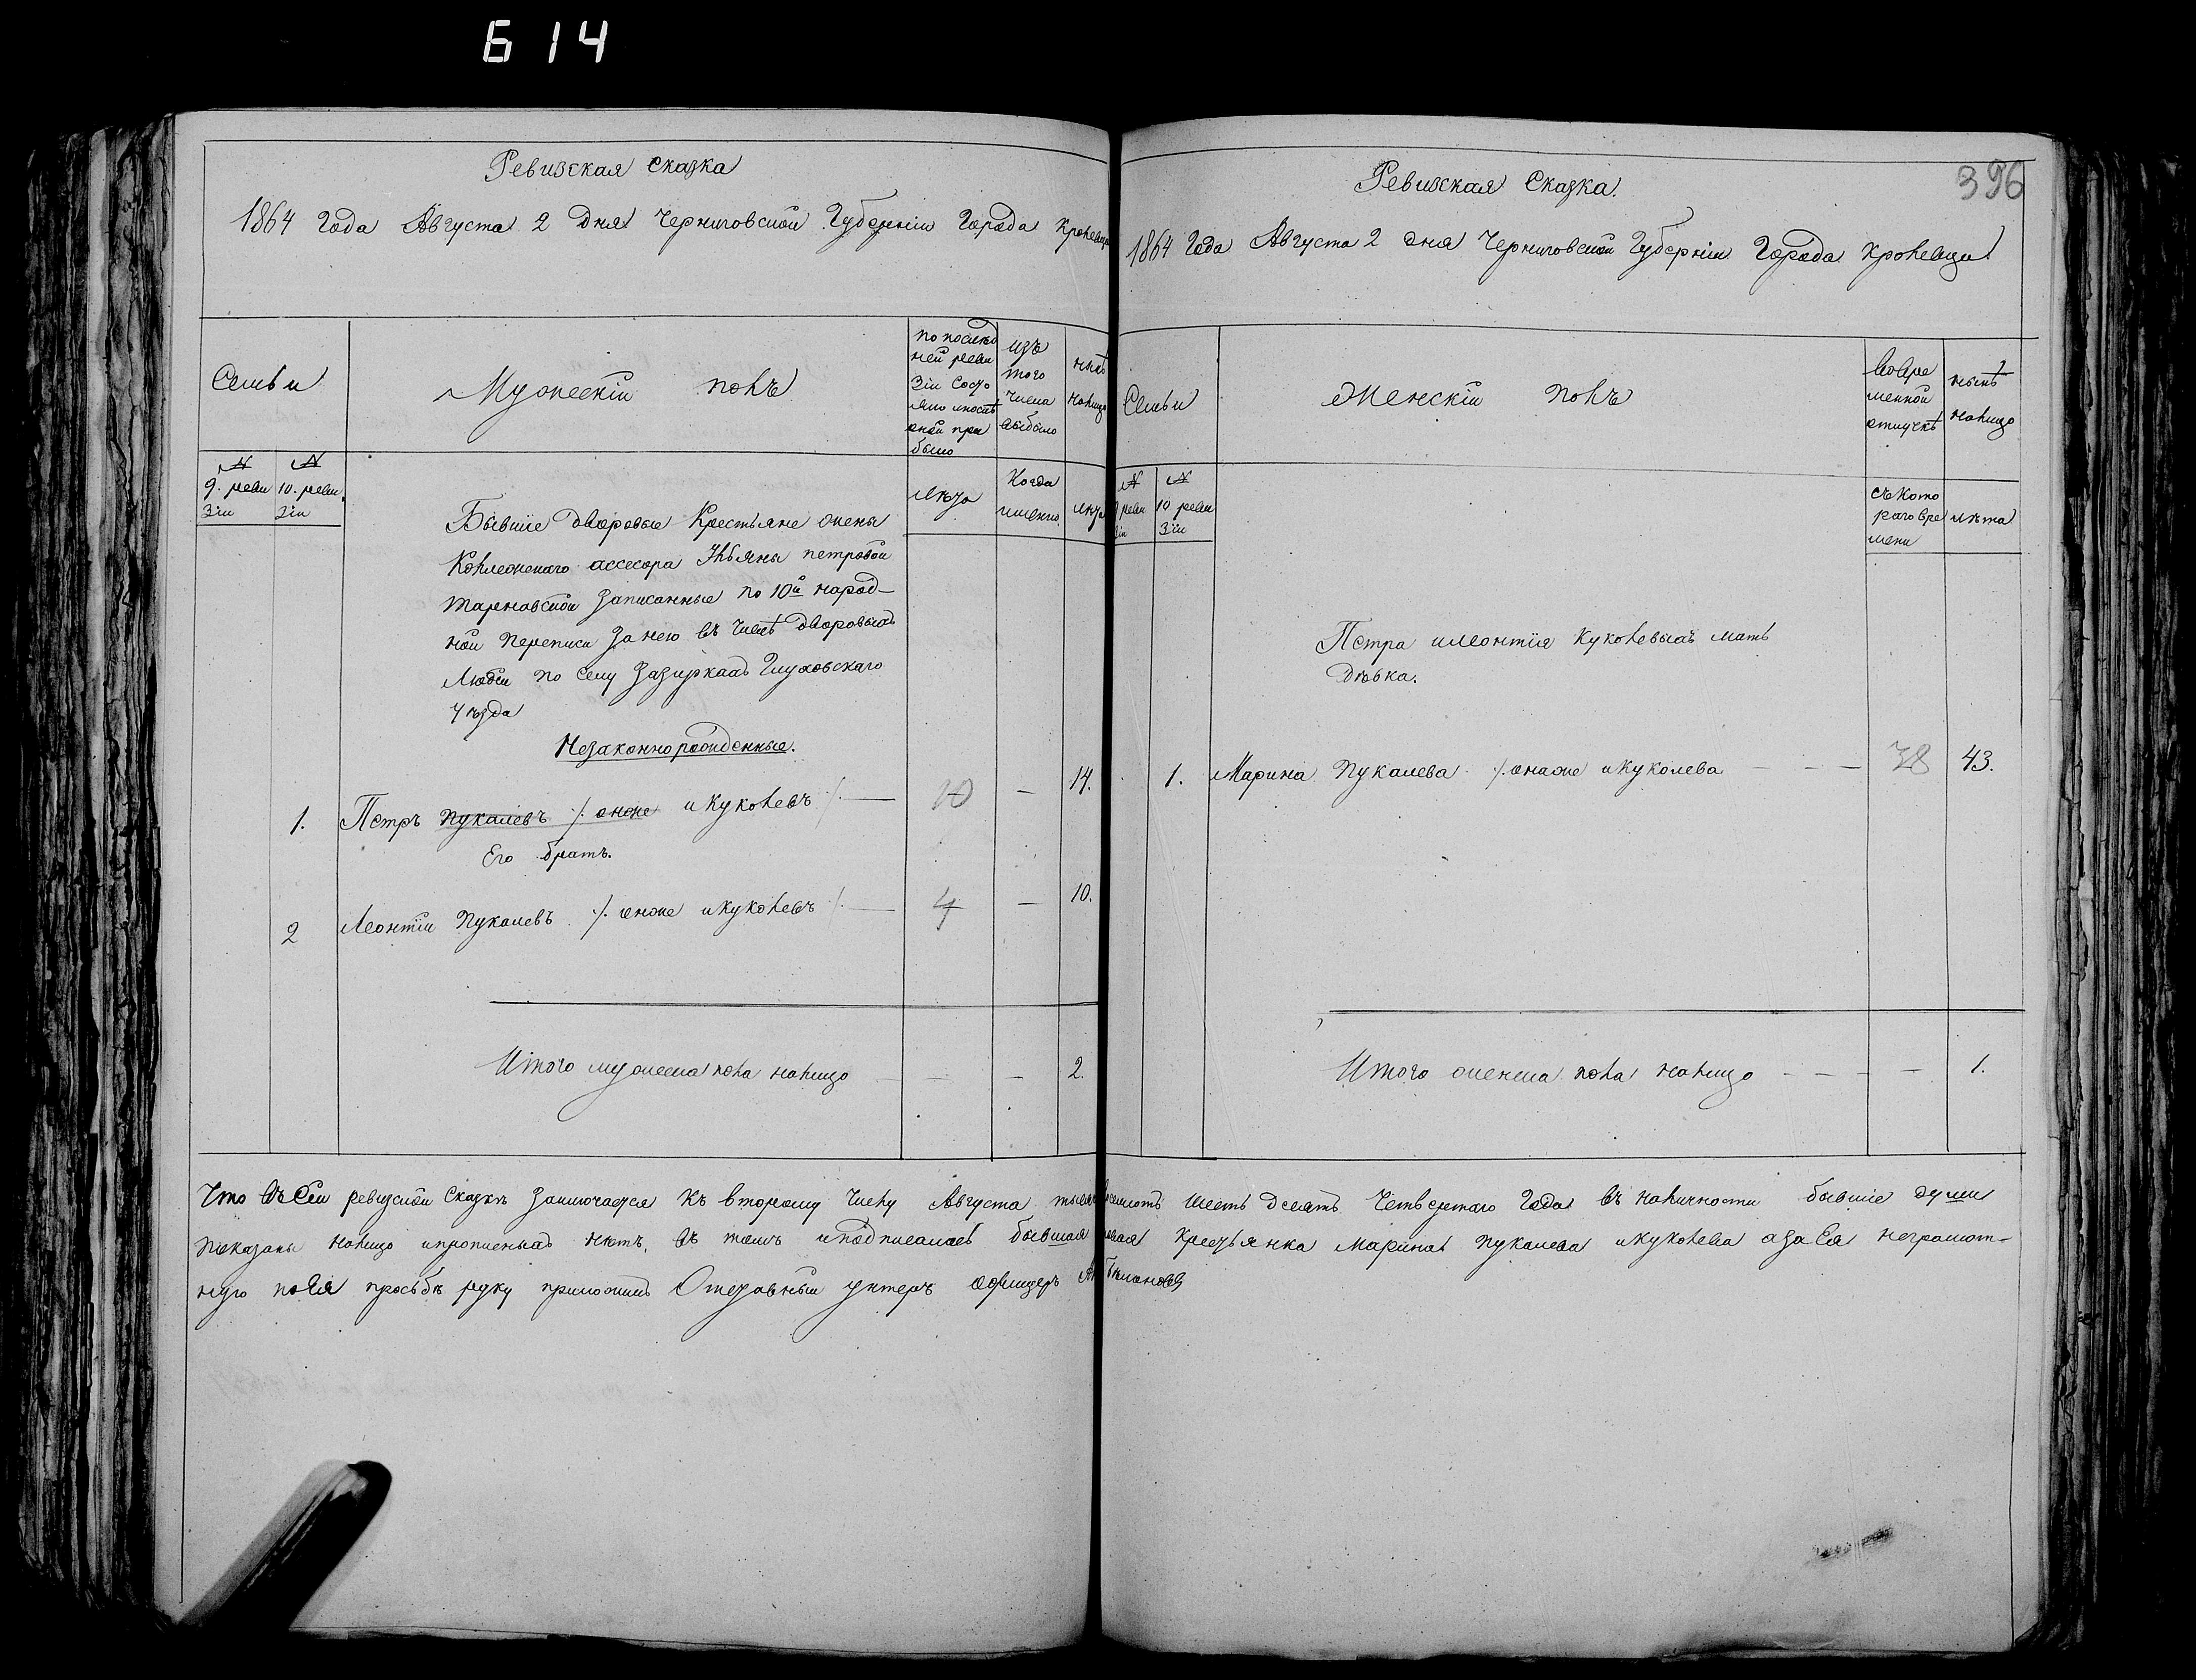 614
Ревизская Сказка
1864 года Августа 2 дня Черниговской Губерніи Города Кролевца
Семьи
Мужескій полъ
по послѣд
ней реви
зіи состо
яло и послѣ
оной при
было
изъ
того
числа
выбыло
нынѣ
налицо
№
9. реви
зіи
№
10. реви
зіи
Лѣта
Когда
именно
лѣта
Бывшіе дворовые Крестьяне жены
Колежскаго ассесора Ульяны петровой
Тарновской записанные по 10й народ-
ной переписи за нею въ числѣ дворовыхъ
Людей по селу Зазиркахъ Глуховскаго
уѣзда
Незаконнорожденные.
1. Петръ Пукалевъ /. онже и Куколевъ /. — 10 — 14.
Его братъ.
2 Леонтій Пукалевъ /. онже и куколевъ /. — 4 — 10.
Итого мужеска пола налицо — — 2.
396
Ревизская Сказка.
1864 года Августа 2 дня Черниговской Губерніи Города Кролевца
Семьи
Женскій полъ
Вовре
менной
отлучкѣ
нынѣ
налицо
№
9 реви
зіи
№
10 реви
зіи
съ кото
раго вре
мени
лѣта
Петра и Леонтія Куколевыхъ мать
Дѣвка.
1. Марина Пукалева /. онаже и Куколева — — — 38 43.
Итого женска пола налицо — — — — 1.
Что въ сей ревизской Сказкѣ заключается къ второму числу Августа тысяча восемсотъ шесть десятъ Четвертаго года въ наличности бывшіе души
показаны налицо и прописныхъ нѣтъ, въ томъ и подписалась бывшая дворовая крестьянка Марина Пукалева и куколева а за Ея неграмот-
ную по Ея прозьбѣ руку приложилъ Отставный унтеръ офицеръ